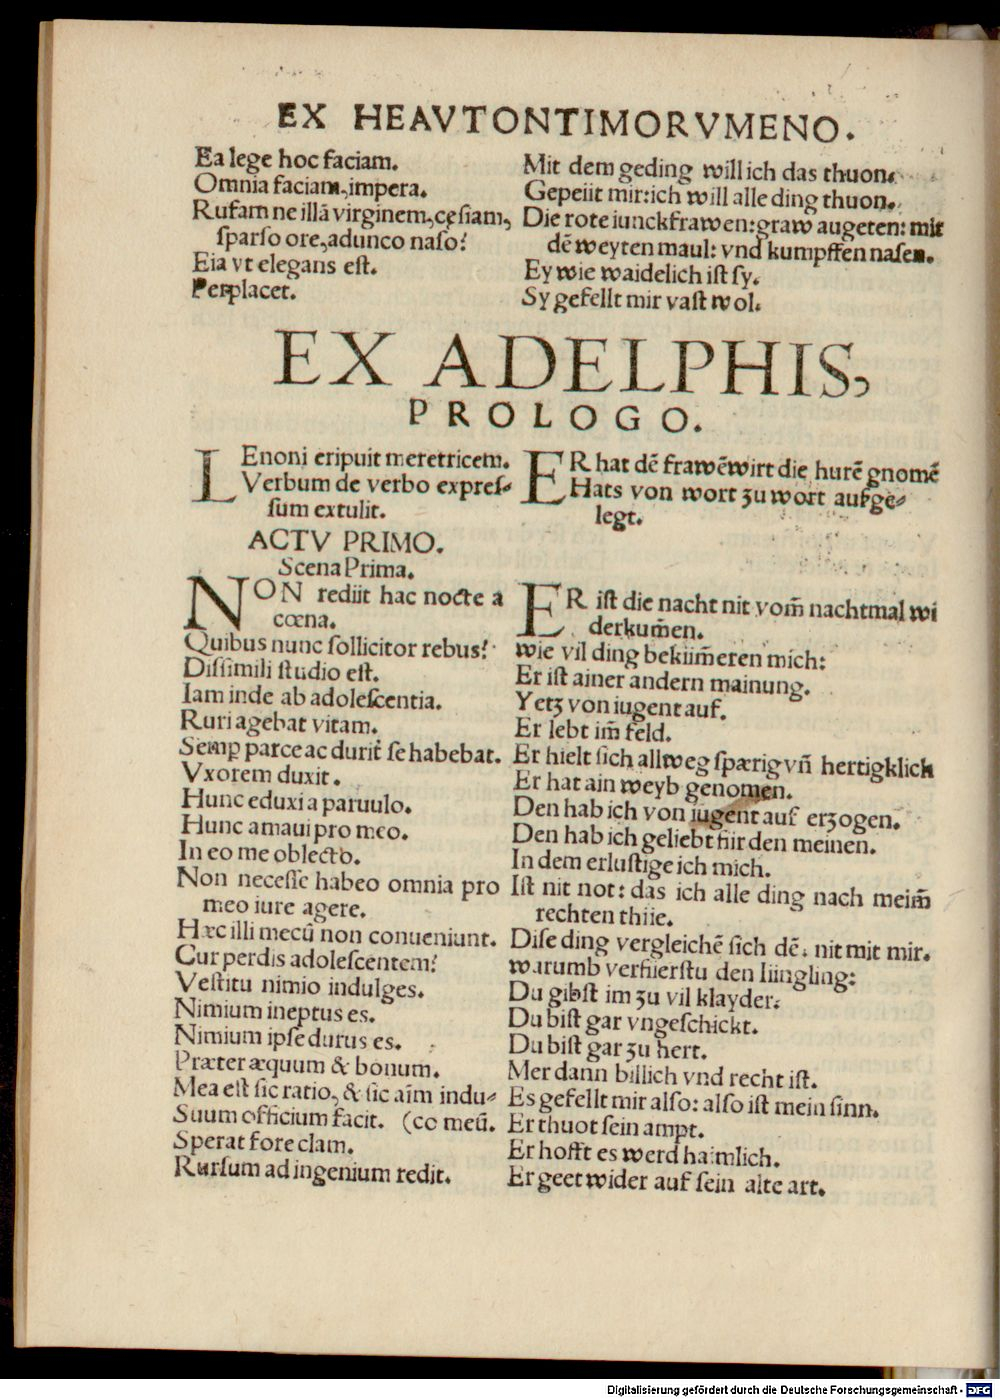 EX HEAVTONTIMORVMENO.
Ea lege hoc faciam.
Omnia faciam, impera.
Rufam ne illā virginem, cęsiam,
sparso ore, adunco naso?
Eia vt elegans est.
Perplacet.
Mit dem geding will ich das thuon.
Gepeiit mir: ich will alle ding thuon.
Die rote iunckfrawen: graw augeten: mit
dē weyten maul: vnd kumpffen nasen.
Ey wie waidelich ist sy.
Sy gefellt mir vast wol.
EX ADELPHIS,
PROLOGO.
LEnoni eripuit meretricem.
Verbum de verbo expres-
sum extulit.
ER hat dē frawēwirt die hurē gnomē
Hats von wort zu wort aufge-
legt.
ACTV PRIMO.
Scena Prima.
NON rediit hac nocte a
cœna.
Quibus nunc sollicitor rebus?
Dissimili studio est.
Iam inde ab adolescentia.
Ruri agebat vitam.
Semꝑ parce ac durit̾ se habebat.
Vxorem duxit.
Hunc eduxi a paruulo.
Hunc amaui pro meo.
In eo me oblecto.
Non necesse habeo omnia pro
meo iure agere.
Hæc illi mecū non conueniunt.
Cur perdis adolescentem?
Vestitu nimio indulges.
Nimium ineptus es.
Nimium ipse durus es.
Præter æquum & bonum.
Mea est sic ratio, & sic aīm indu-
Suum officium facit. (co meū.
Sperat fore clam.
Rursum ad ingenium redit.
ER ist die nacht nit vom̄ nachtmal wi
derkum̄en.
wie vil ding bekiim̄eren mich:
Er ist ainer andern mainung.
Yetz von iugent auf.
Er lebt im̄ feld.
Er hielt sich allweg spærig vn̄ hertigklich
Er hat ain weyb genomen.
Den hab ich von iugent auf erzogen.
Den hab ich geliebt fiir den meinen.
In dem erlustige ich mich.
Ist nit not: das ich alle ding nach meim̄
rechten thiie.
Dise ding vergleichē sich dē. nit mit mir.
warumb verfiierstu den Iiingling:
Du gibst im zu vil klayder.
Du bist gar vngeschickt.
Du bist gar zu hert.
Mer dann billich vnd recht ist.
Es gefellt mir also: also ist mein sinn.
Er thuot sein ampt.
Er hofft es werd haimlich.
Er geet wider auf sein alte art.
Digitalisierung gefördert durch die Deutsche Forschungsgemeinschaft - DFG